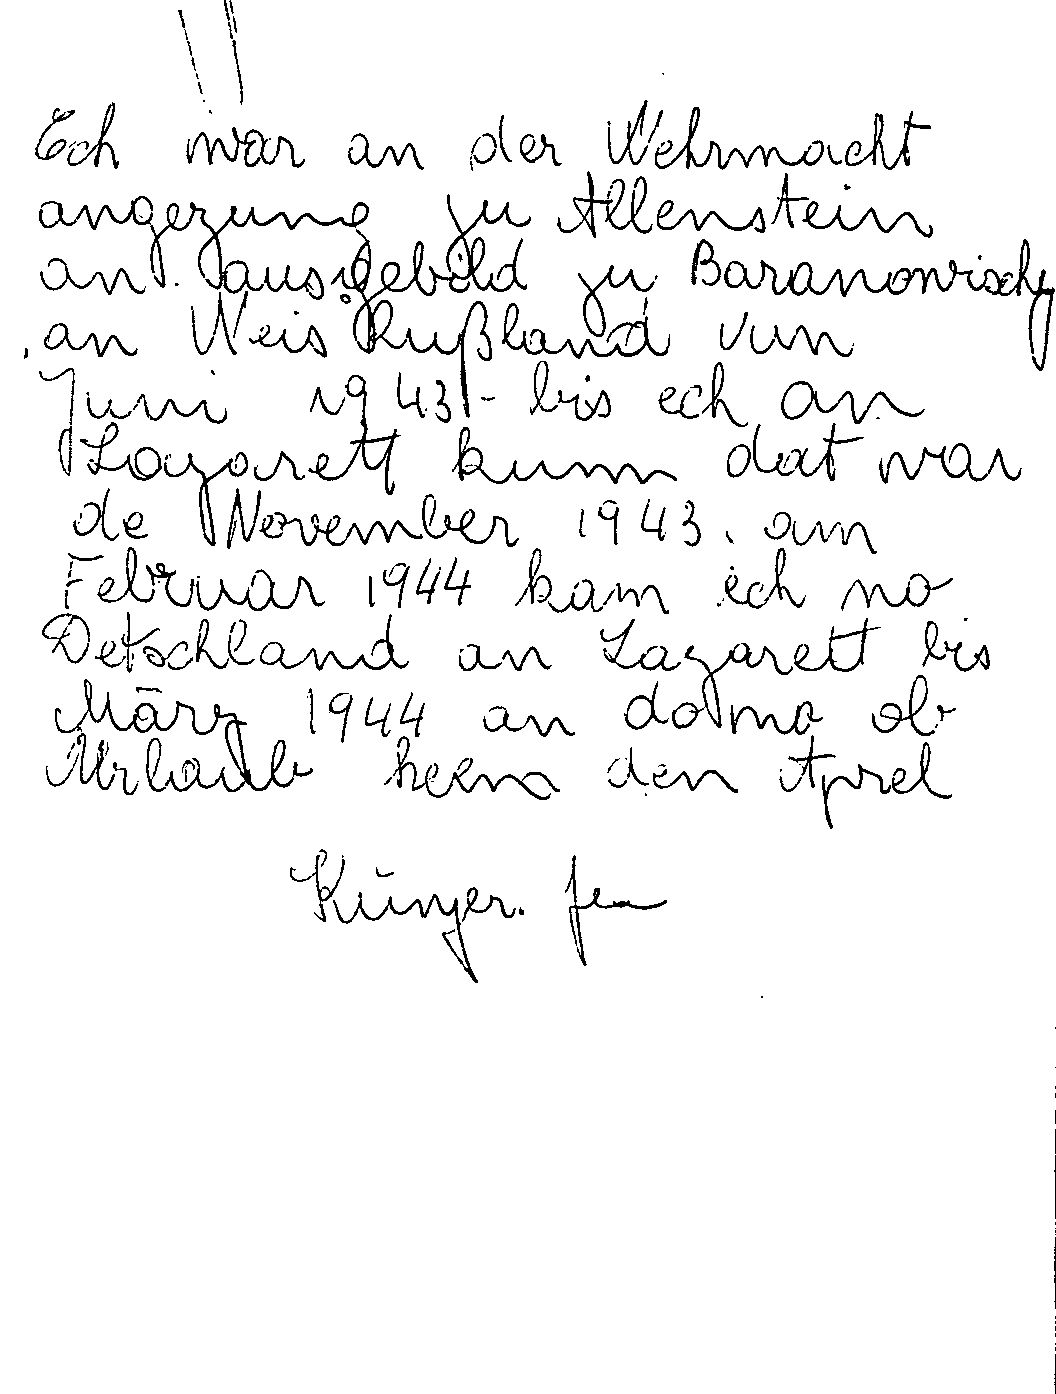 Ech war an der Wehrmacht
angezung zu Allenstein
an ausgebild zu Baranowischy
an Weis Rußland vun
Juni 1943 - bis ech an
Lazarett kumm dat war
de November 1943. am
Februar 1944 kam ech no
Detschland an Lazarett bis
März 1944 an dorno ob
Urlaub heem den Aprel
Künger.